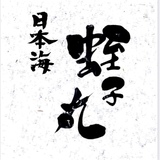 日本海
蛭子丸